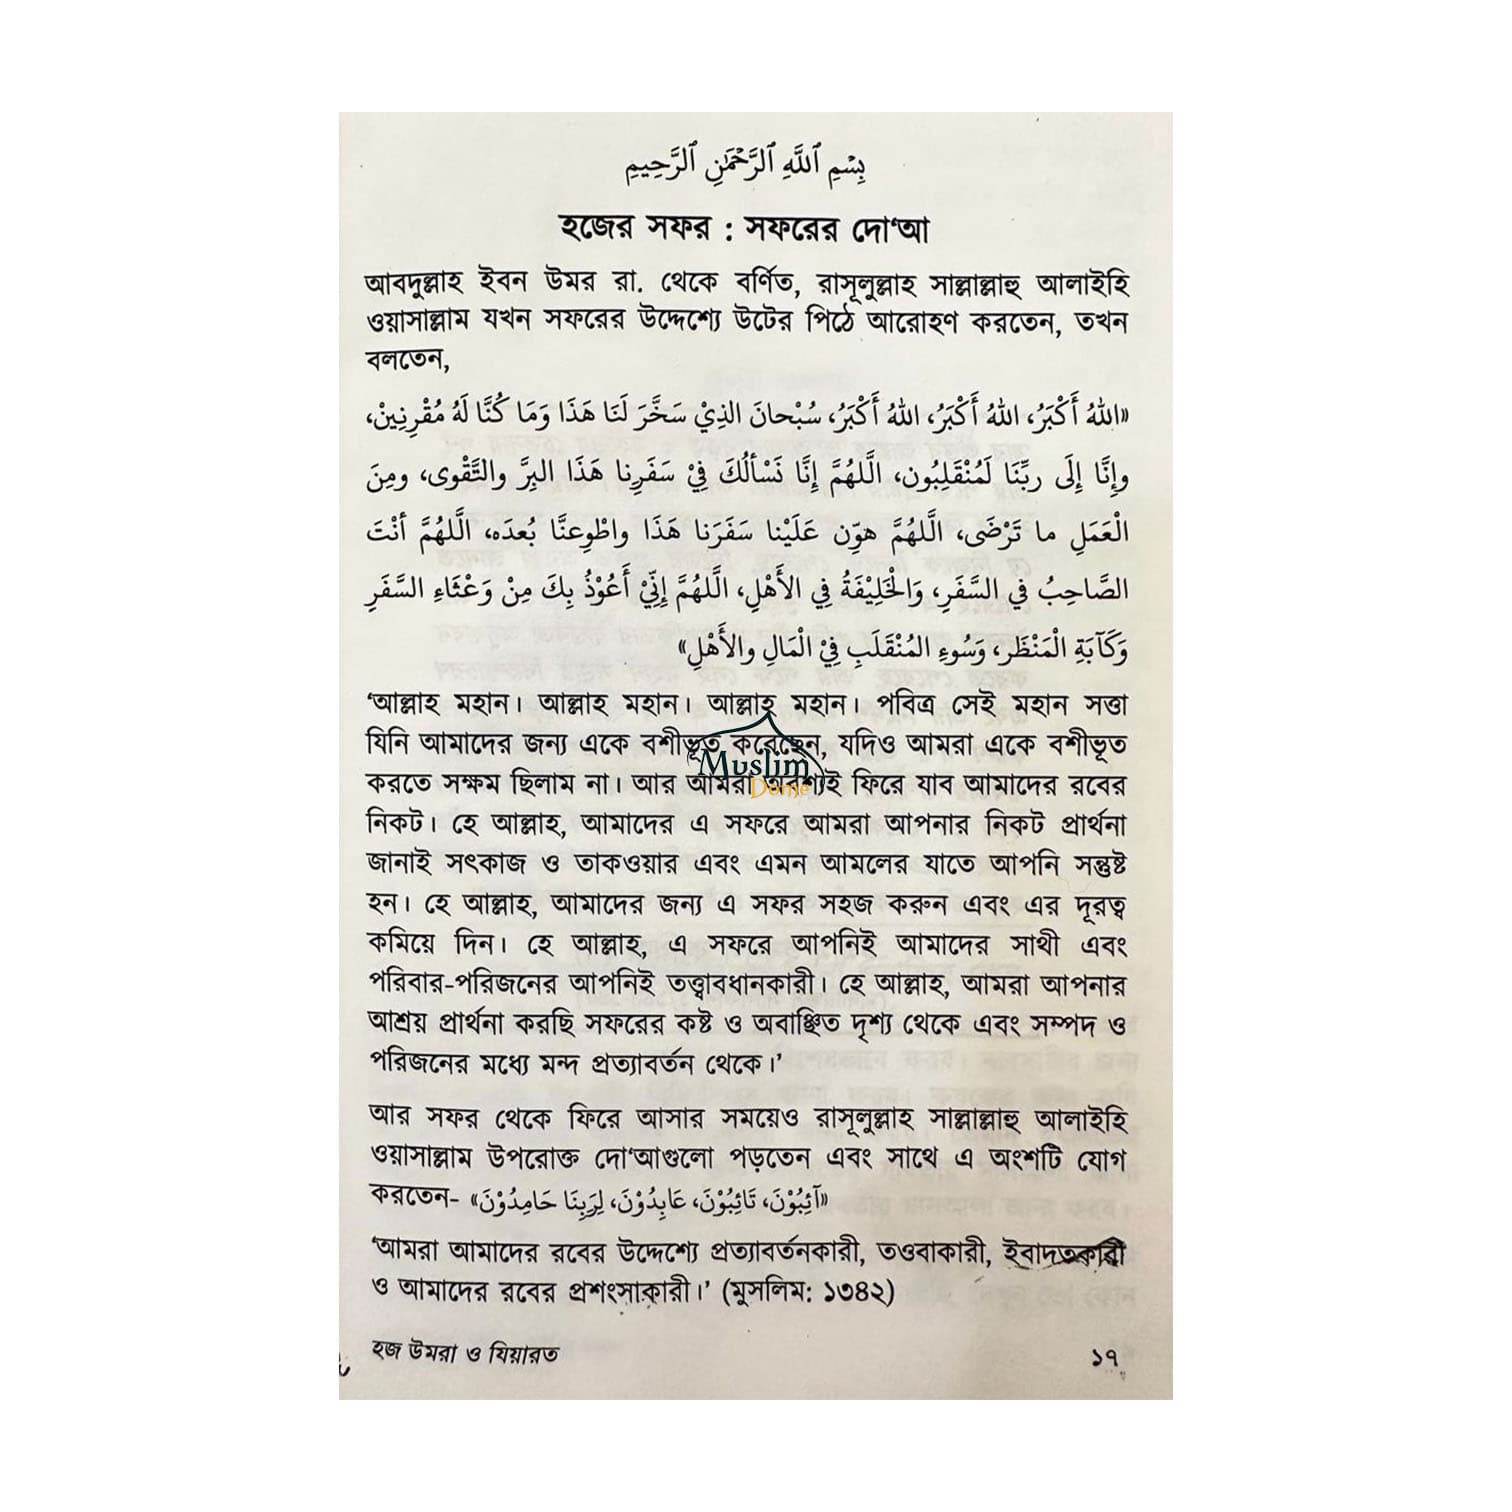 بِسْمِ ٱللَّهِ ٱلرَّحْمَٰنِ ٱلرَّحِيمِ
হজের সফর : সফরের দো‘আ
আবদুল্লাহ ইবন উমর রা. থেকে বর্ণিত, রাসূলুল্লাহ সাল্লাল্লাহু আলাইহি
ওয়াসাল্লাম যখন সফরের উদ্দেশ্যে উটের পিঠে আরোহণ করতেন, তখন
বলতেন,
«اللهُ أَكْبَرُ، اللهُ أَكْبَرُ، اللهُ أَكْبَرُ، سُبْحانَ الذِيْ سَخَّرَ لَنَا هَذَا وَمَا كُنَّا لَهُ مُقْرِنِينْ،
وإِنَّا إِلَى ربِّنَا لَمُنْقَلِبُون، الَّلهُمَّ إِنَّا نَسْألُكَ فِيْ سَفَرِنا هَذَا البِرَّ والتَّقْوى، ومِنَ
الْعَمَلِ ما تَرْضَى، الَّلهُمَّ هوِّن عَلَيْنا سَفَرَنا هَذَا واطْوِعنَّا بُعدَه، الَّلهُمَّ أنْتَ
الصَّاحِبُ في السَّفَرِ، وَالْخَلِيْفَةُ فِي الأَهْلِ، الَّلهُمَّ إِنِّيْ أَعُوْذُ بِكَ مِنْ وَعْثَاءِ السَّفَرِ
وَكَآبَةِ الْمَنْظَرِ، وَسُوءِ المُنْقَلَبِ فِيْ الْمَالِ والأَهْلِ»
‘আল্লাহ মহান। আল্লাহ মহান। আল্লাহ মহান। পবিত্র সেই মহান সত্তা
যিনি আমাদের জন্য একে বশীভূত করেছেন, যদিও আমরা একে বশীভূত
করতে সক্ষম ছিলাম না। আর আমরা অবশ্যই ফিরে যাব আমাদের রবের
নিকট। হে আল্লাহ, আমাদের এ সফরে আমরা আপনার নিকট প্রার্থনা
জানাই সৎকাজ ও তাকওয়ার এবং এমন আমলের যাতে আপনি সন্তুষ্ট
হন। হে আল্লাহ, আমাদের জন্য এ সফর সহজ করুন এবং এর দূরত্ব
কমিয়ে দিন। হে আল্লাহ, এ সফরে আপনিই আমাদের সাথী এবং
পরিবার-পরিজনের আপনিই তত্ত্বাবধানকারী। হে আল্লাহ, আমরা আপনার
আশ্রয় প্রার্থনা করছি সফরের কষ্ট ও অবাঞ্ছিত দৃশ্য থেকে এবং সম্পদ ও
পরিজনের মধ্যে মন্দ প্রত্যাবর্তন থেকে।’
Muslim
Dome
আর সফর থেকে ফিরে আসার সময়েও রাসূলুল্লাহ সাল্লাল্লাহু আলাইহি
ওয়াসাল্লাম উপরোক্ত দো‘আগুলো পড়তেন এবং সাথে এ অংশটি যোগ
করতেন- «آئِبُوْنَ، تَائِبُوْنَ، عَابِدُوْنَ، لِرَبِنَا حَامِدُوْنَ»
‘আমরা আমাদের রবের উদ্দেশ্যে প্রত্যাবর্তনকারী, তওবাকারী, ইবাদতকারী
ও আমাদের রবের প্রশংসাকারী।’ (মুসলিম: ১৩৪২)
হজ উমরা ও যিয়ারত
১৭